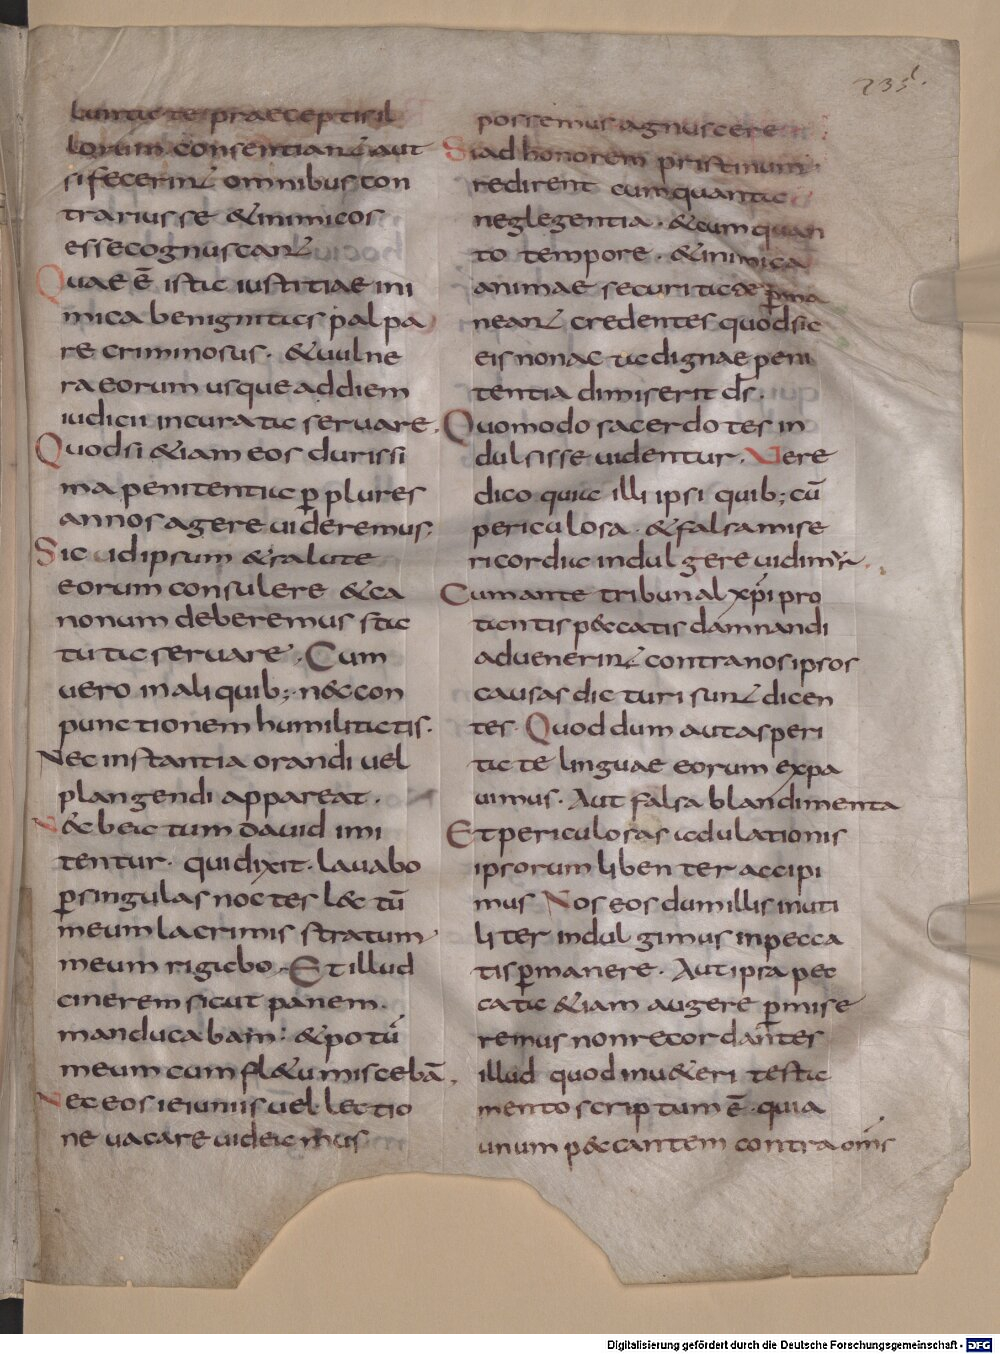 235.
buntate praeceptis il
lorum consentianť aut
si fecerinť omnibus con
trarius se &inimicos
esse cognuscanť
Quae ē ista iustitiae ini
mica benignitas palpa
re criminosus · &uulne
ra eorum usque ad diem
iudicii incurata seruare.
Quod si &iam eos durissi
ma penitentia p̱ plures
annos agere uideremus.
Sic ad ipsum &salute
eorum consulere &ca
nonum deberemus sta
tuta seruare. Cum
uero in aliquib; · n&con
punctionem humilitatis.
Nec instantia orandi uel
plangendi appareat.
N&c beatum dauid imi
tentur · qui dixit · lauabo
p̱singulas noctes l&c tū
meum lacrimis stratum
meum rigabo. Et illud
cinerem sicut panem.
manducabam : &potū
meum cum fl&u miscebā.
Nec eos ieiuniis uel lectio
ne uacare uideamus
possemus agnuscere
Si ad honorem pristinum
redirent cum quanta
neglegentia · &cum quan
to tempore · &inimica
animae securitate p̱ma
neanť credentes quod sic
eis non ac ta dignae peni
tentia dimiserit d̄s.
Quomodo sacerdotes in
dulsisse uidentur. Vere
dico quia illi ipsi quib; cū
periculosa · &falsa mise
ricordia indulgere uidimur.
Cum ante tribunal xp̄i pro
tantis p&ccatis damnandi
aduenerinť contra nos ipsos
causas dicturi sunť dicen
tes · Quod dum aut asperi
tate linguae eorum expa
uimus. Aut falsa blandimenta
Et periculosas adulationis
ipsorum libenter accipi
mus Nos eos dum illis inuti
liter indulgimus in pecca
tis p̱manere. Aut ipsa pec
cata &iam augere p̱mise
remus non recordantes
illud quod in u&eri testa
mento scriptum ē · quia
unum p&ccantem contra om̄s
Digitalisierung gefördert durch die Deutsche Forschungsgemeinschaft - DFG